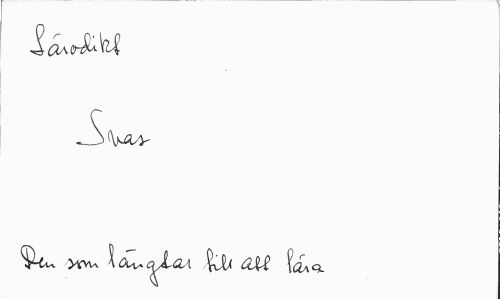 Lärodikt
Svas
Den som längtar till att lära